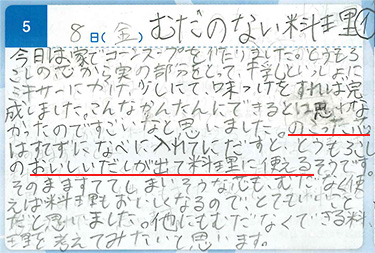 5 8日(金) むだのない料理①
今日は家でコーンスープを作りました。とうもろ
こしの芯から実の部分をとって、牛乳といっしょに
ミキサーにかけ、少しにて味つけをすれば完
成しました。こんなかんたんにできるとは思わな
かったのですごいなと思いました。のこったしん
はすてずになべに入れてにだすと、とうもろこし
のおいしいだしが出て料理に使えるそうです。
そのまますててしまいそうな花も、むだなく使
えば料理もおいしくなるのでとてもいいこと
だと思いました。他にもむだなくできる料
理を考えてみたいと思います。